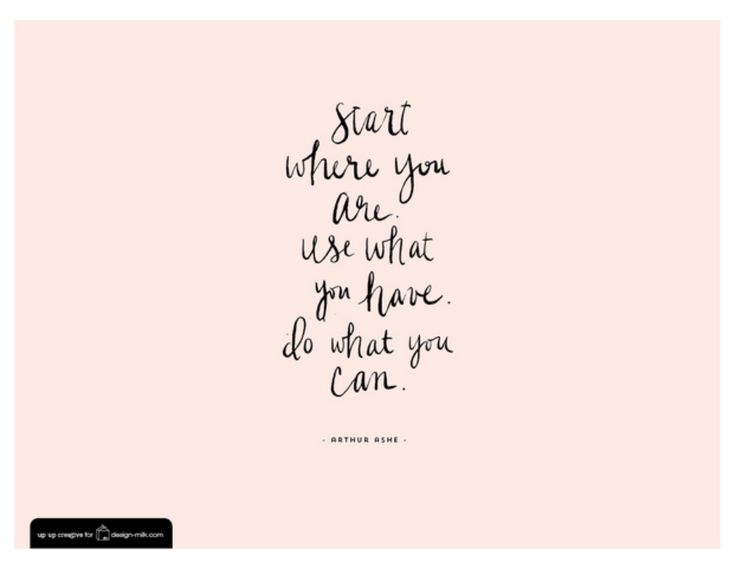 Start
where you
are.
use what
you have.
do what you
can.
- ARTHUR ASHE -
up up creative for design-milk.com